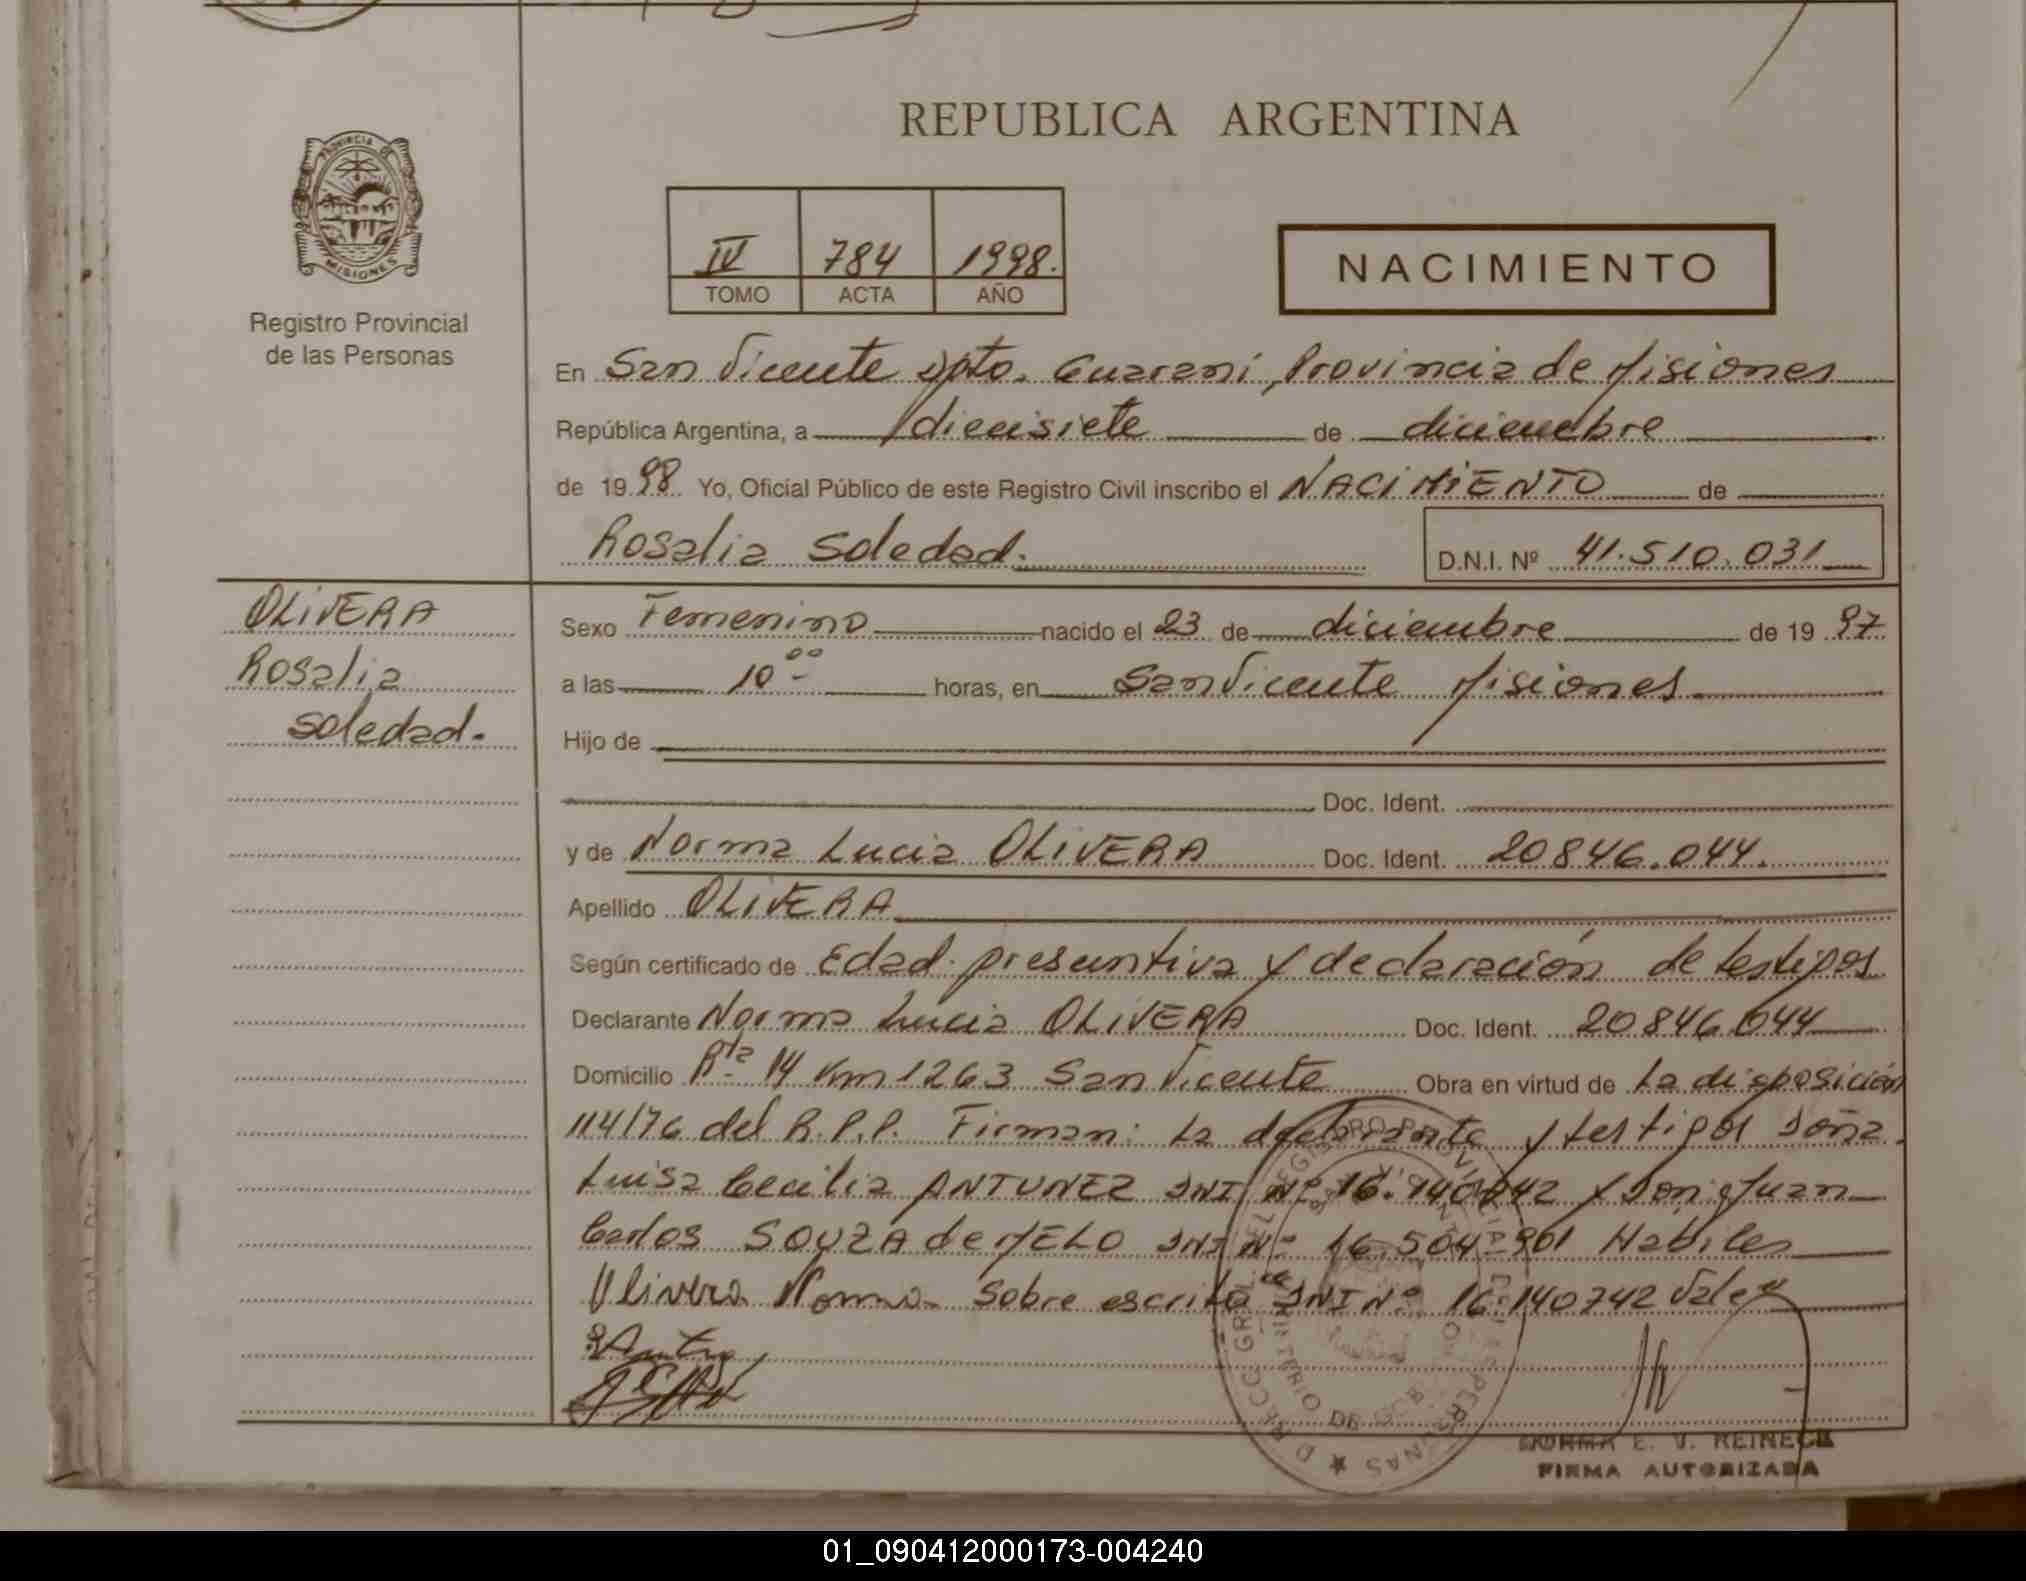 REPUBLICA ARGENTINA
PROVINCIA DE
MISIONES
Registro Provincial
de las Personas
IV 784 1998.
TOMO ACTA AÑO
NACIMIENTO
En San Vicente Dpto. Guaraní, Provincia de Misiones
República Argentina, a diecisiete de diciembre
de 1998 Yo, Oficial Público de este Registro Civil inscribo el NACIMIENTO de
Rosalia Soledad. D.N.I. Nº 41.510.031
OLIVERA
Rosalia
Soledad.
Sexo Femenino nacido el 23 de diciembre de 1997
a las 10 00 horas, en San Vicente Misiones
Hijo de
Doc. Ident.
y de Norma Lucia OLIVERA Doc. Ident. 20846.044.
Apellido OLIVERA
Según certificado de Edad presuntiva y declaración de testigos
Declarante Norma Lucia OLIVERA Doc. Ident. 20846044
Domicilio Rta 14 Km 1263 San Vicente Obra en virtud de La disposición
114/76 del R.P.P. Firman: La declarante y testigos Doña
Luisa Cecilia ANTUNEZ DNI Nº 16.140742 y Don Juan
Carlos SOUZA de MELO DNI Nº 16.504.901 Habiles
Olivera Norma Sobre escrito DNI Nº 16.140742 Vale
NORMA E. V. REINECK
FIRMA AUTORIZADA
01_090412000173-004240